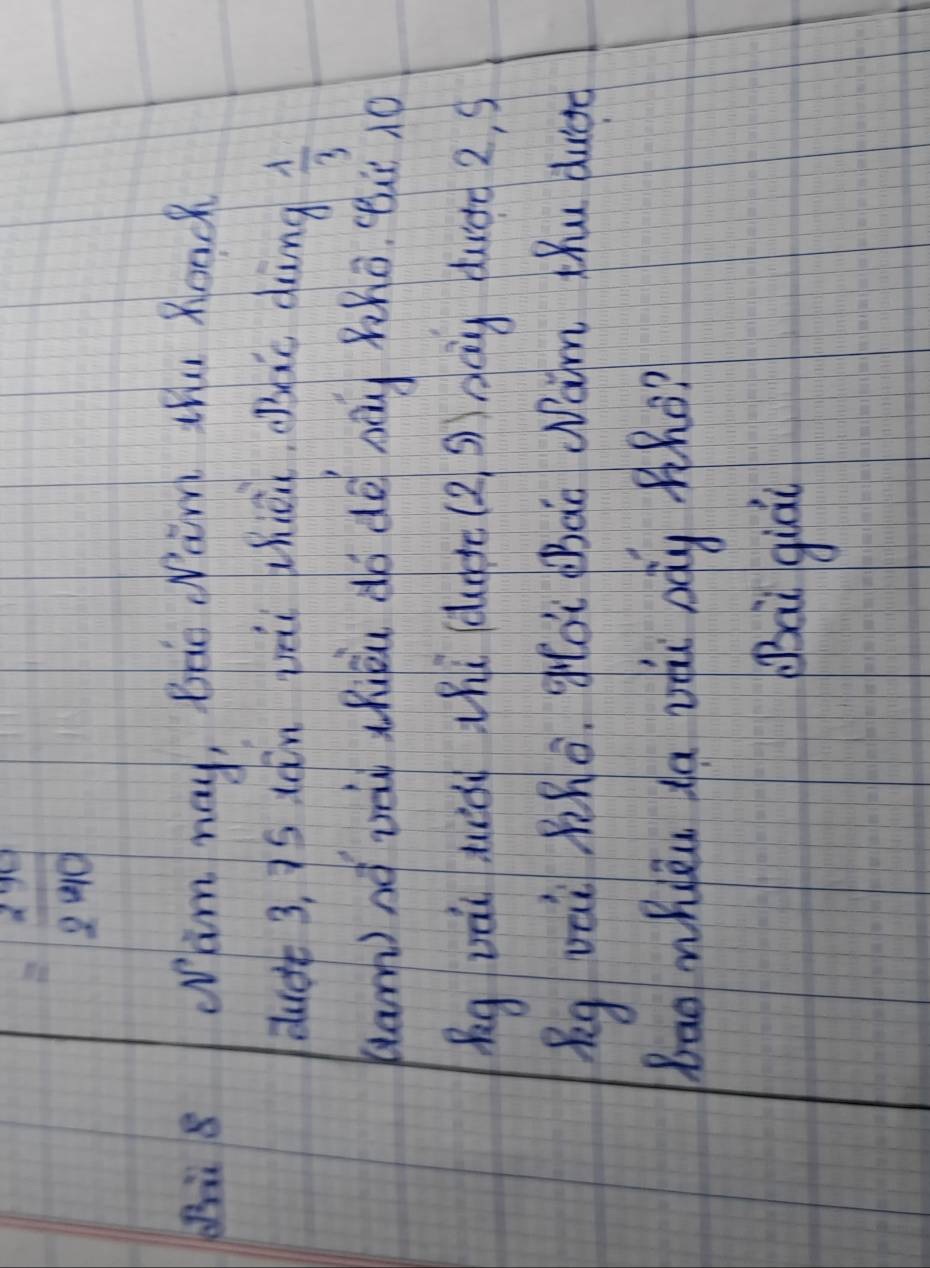 240
=
240
Bài 8 Năm nay, bác Năm thu hoạch
được 3,75 tấn vải thiều. Bác dùng 1/3
(làm) số vải thiều đó để sấy khô. Cứ 10
kg vải tươi thì (được (2,5) sấy được 2,5
kg vải khô. Hỏi Bác Năm thu được
bao nhiêu tạ vải sấy khô?
Bài giải